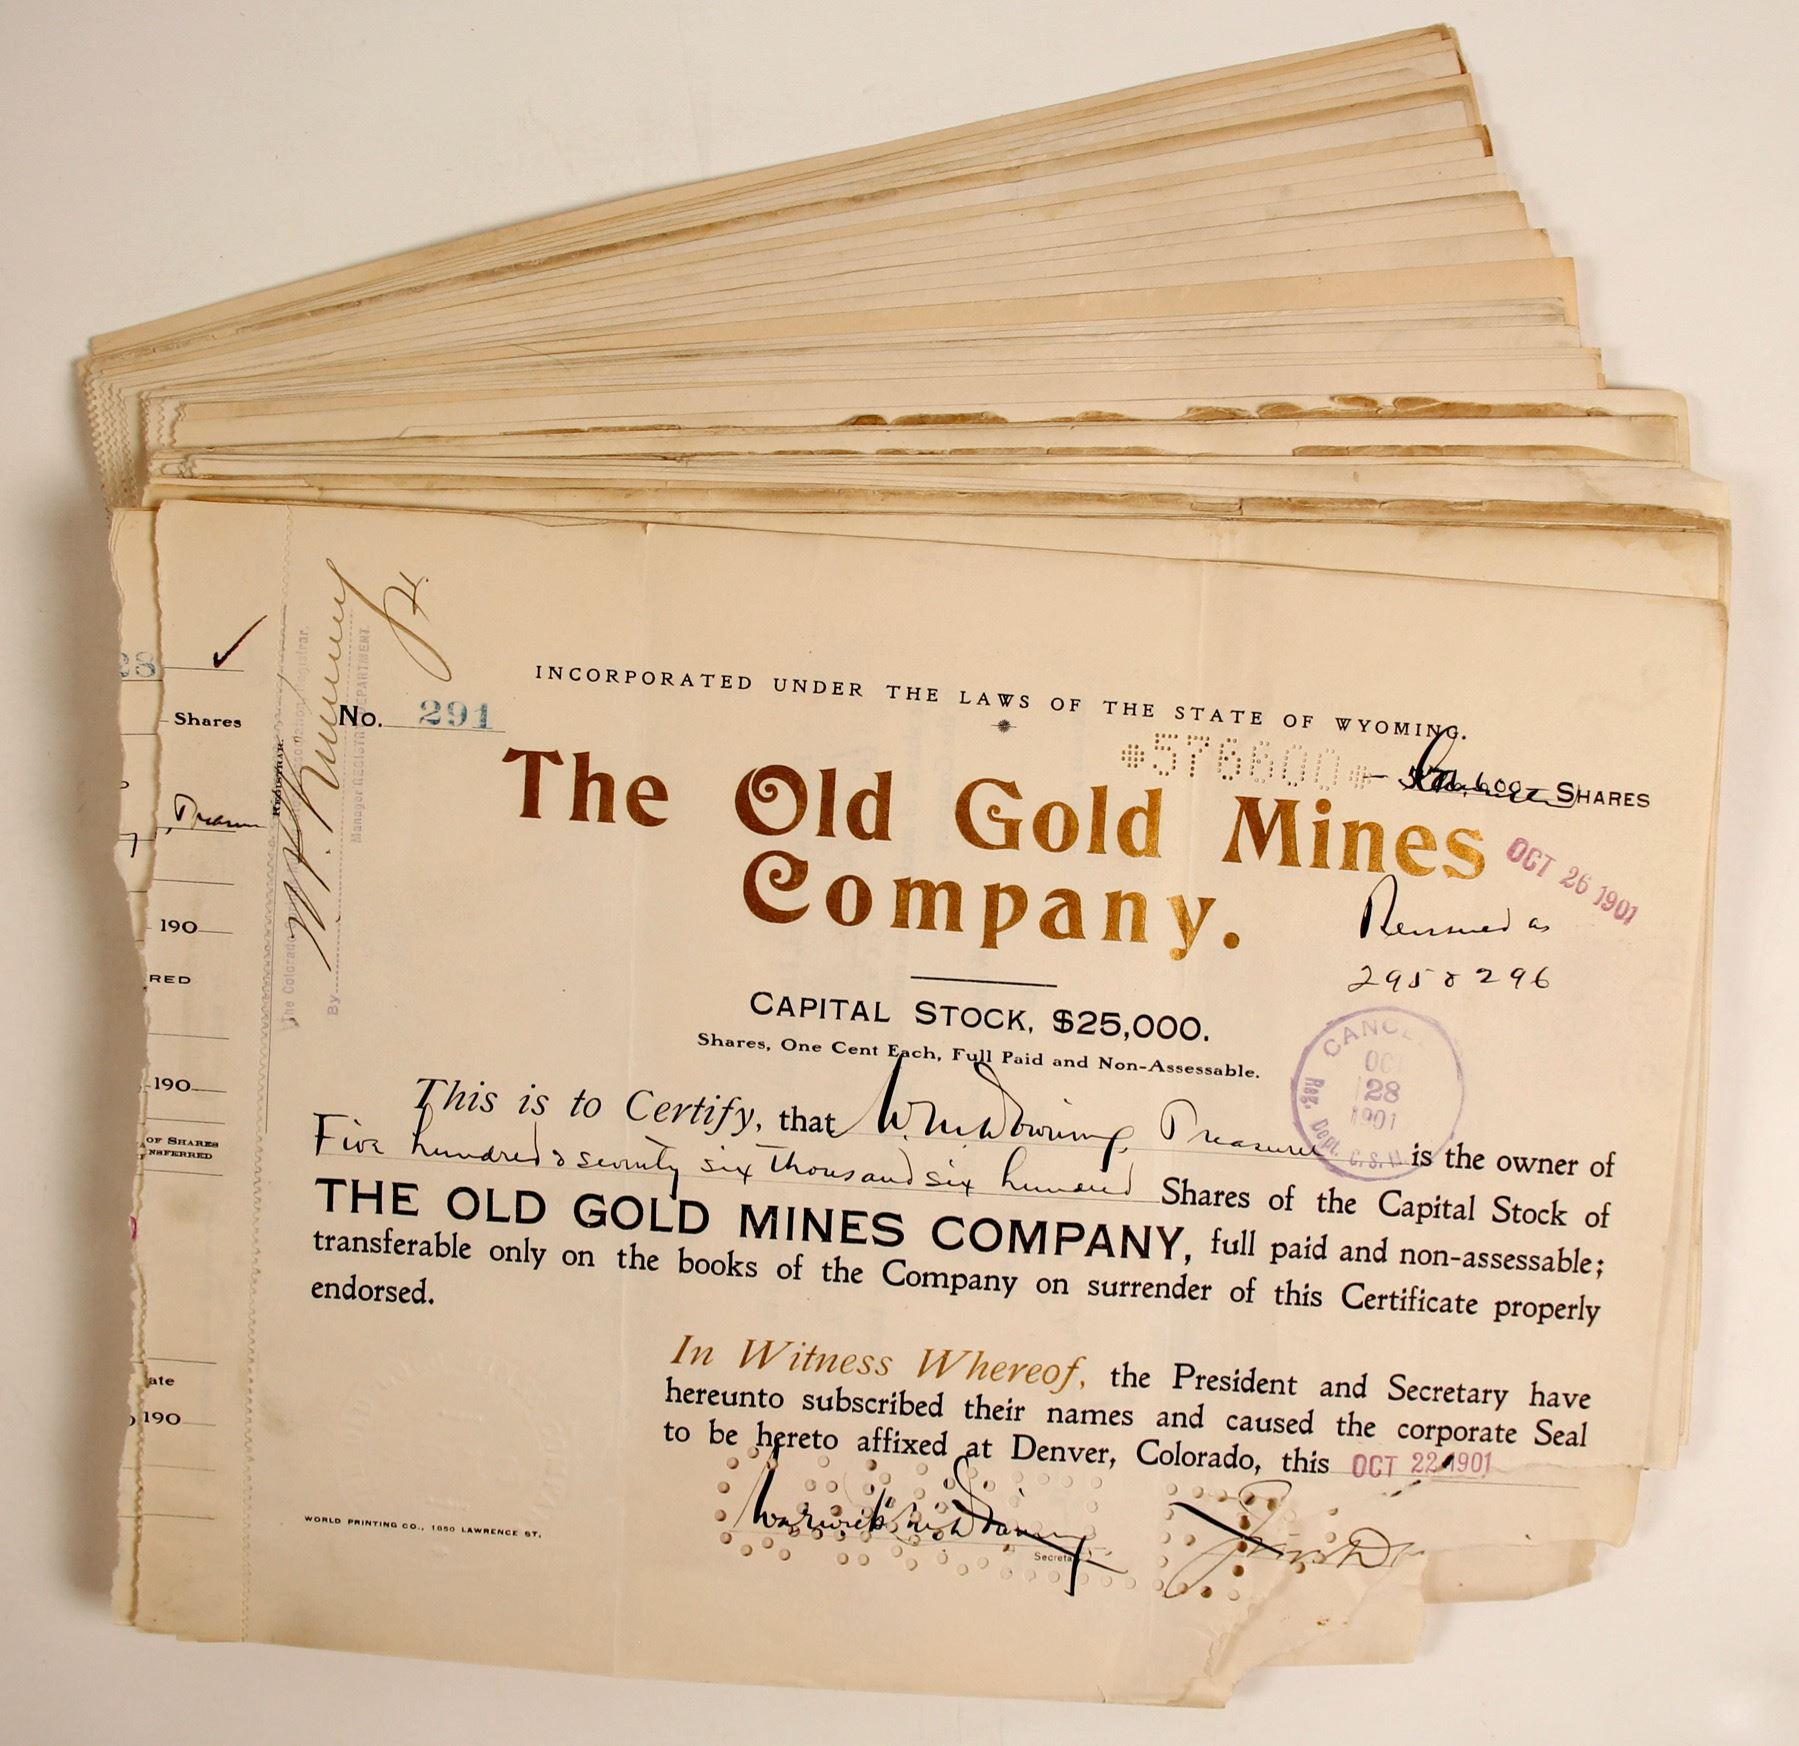 28
Shares
Treasurer
190
RED
190
OF SHARES
NSFERRED
ate
190
REGISTRAR.
By
Manager REGISTRY DEPARTMENT.
No. 291
INCORPORATED UNDER THE LAWS OF THE STATE OF WYOMING.
*576600*
576,600 SHARES
The Old Gold Mines
Company.
OCT 26 1901
Reissued as
295 & 296
CAPITAL STOCK, $25,000.
Shares, One Cent Each, Full Paid and Non-Assessable.
CANCEL
OCT
28
1901
Reg. Dept. C.S.
This is to Certify, that W. M. Downing, Treasurer is the owner of
Five hundred & seventy six thousand six hundred Shares of the Capital Stock of
THE OLD GOLD MINES COMPANY, full paid and non-assessable;
transferable only on the books of the Company on surrender of this Certificate properly
endorsed.
In Witness Whereof, the President and Secretary have
hereunto subscribed their names and caused the corporate Seal
to be hereto affixed at Denver, Colorado, this OCT 22 1901
Warwick M. Downing
Secreta
WORLD PRINTING CO., 1850 LAWRENCE ST.